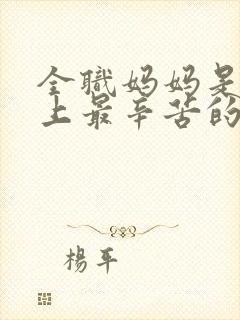 全職媽媽是
上最辛苦的
楊平